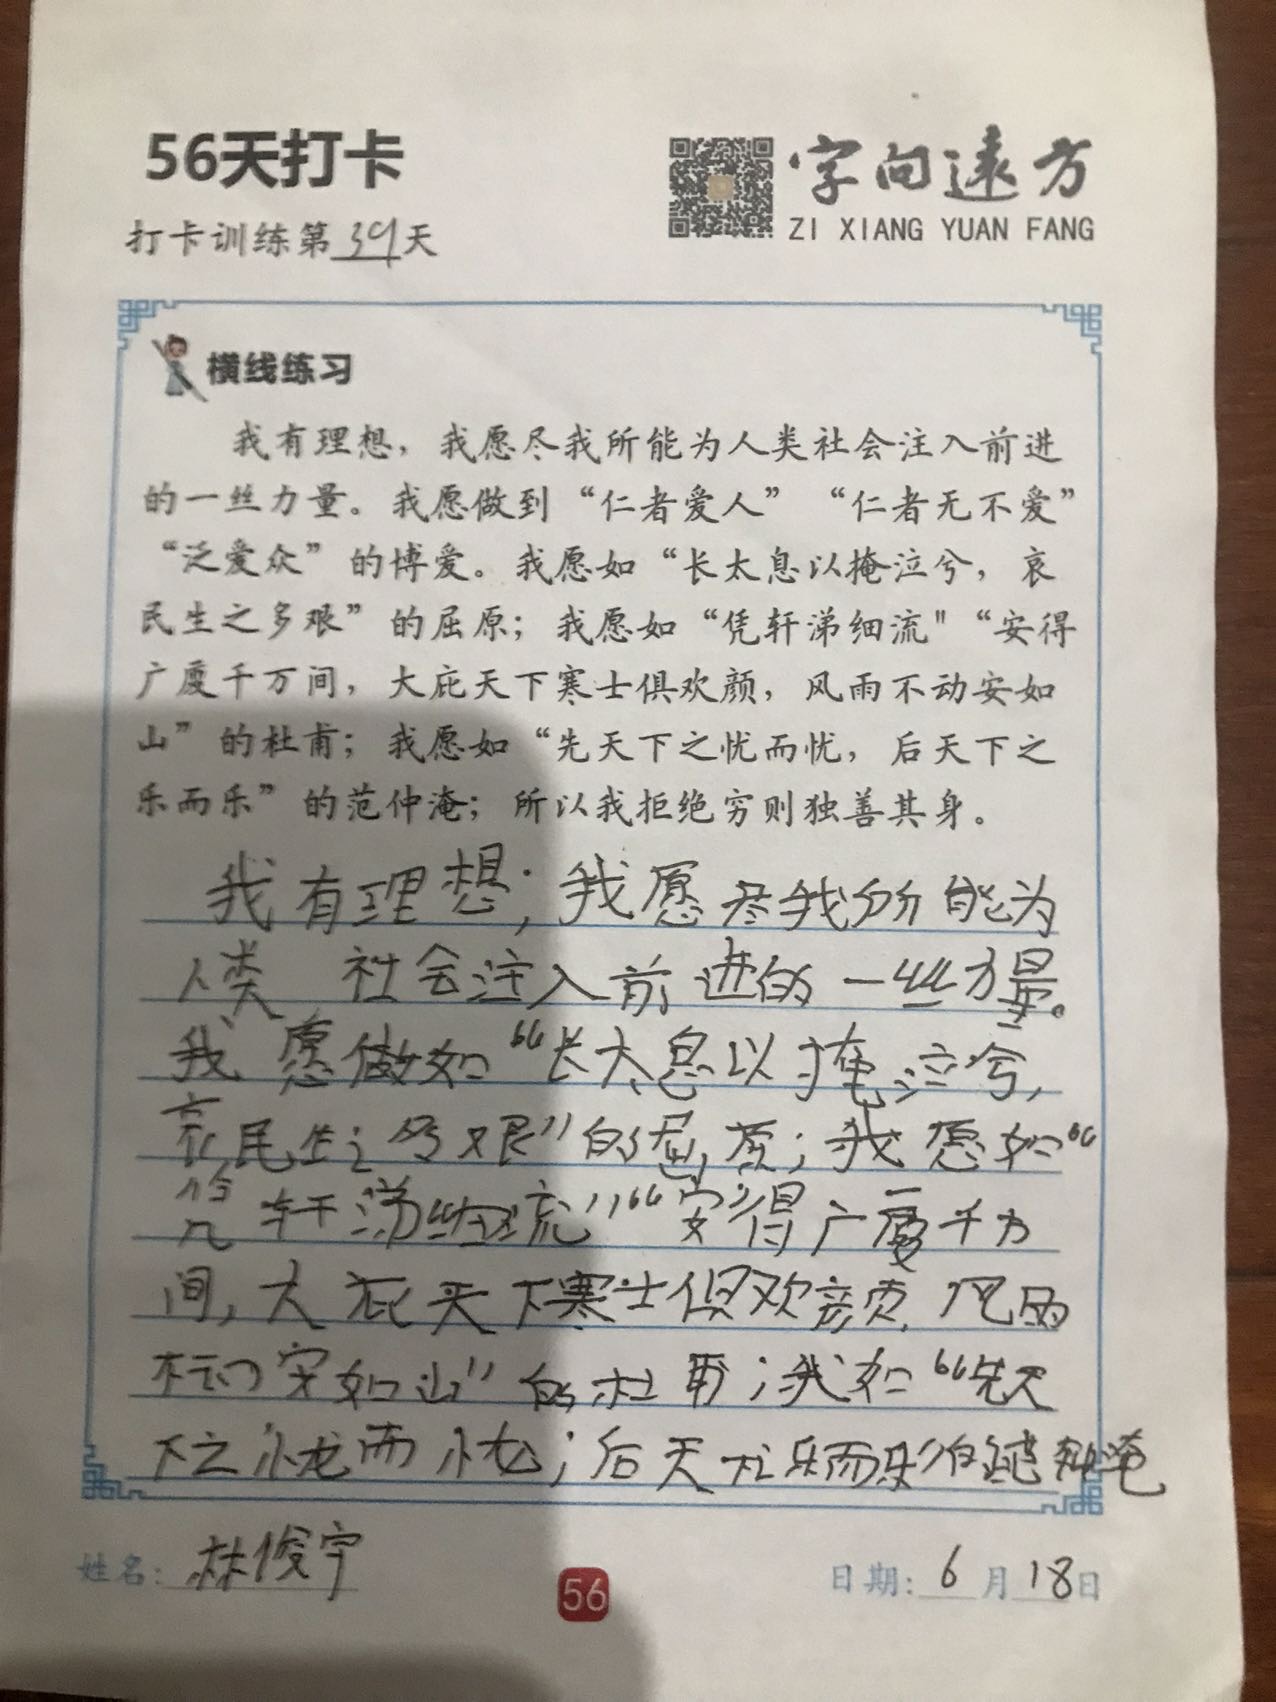 56天打卡
字向远方
ZI XIANG YUAN FANG
打卡训练第39天
横线练习
我有理想，我愿尽我所能为人类社会注入前进
的一丝力量。我愿做到“仁者爱人”“仁者无不爱”
“泛爱众”的博爱。我愿如“长太息以掩泣兮，哀
民生之多艰”的屈原；我愿如“凭轩涕细流"“安得
广厦千万间，大庇天下寒士俱欢颜，风雨不动安如
山”的杜甫；我愿如“先天下之忧而忧，后天下之
乐而乐”的范仲淹；所以我拒绝穷则独善其身。
我有理想；我愿尽我所能为
人类 社会注入前进的一丝力量。
我愿做如“长太息以掩泣兮，
哀民生之多艰”的屈原；我愿如“
凭轩涕细流”“安得广厦千万
间，大庇天下寒士俱欢颜，风雨
不动安如山”的杜甫；我如“先天
下之忧而忧；后天下之乐而乐”的范仲淹
姓名：林俊宇
56
日期：6月18日